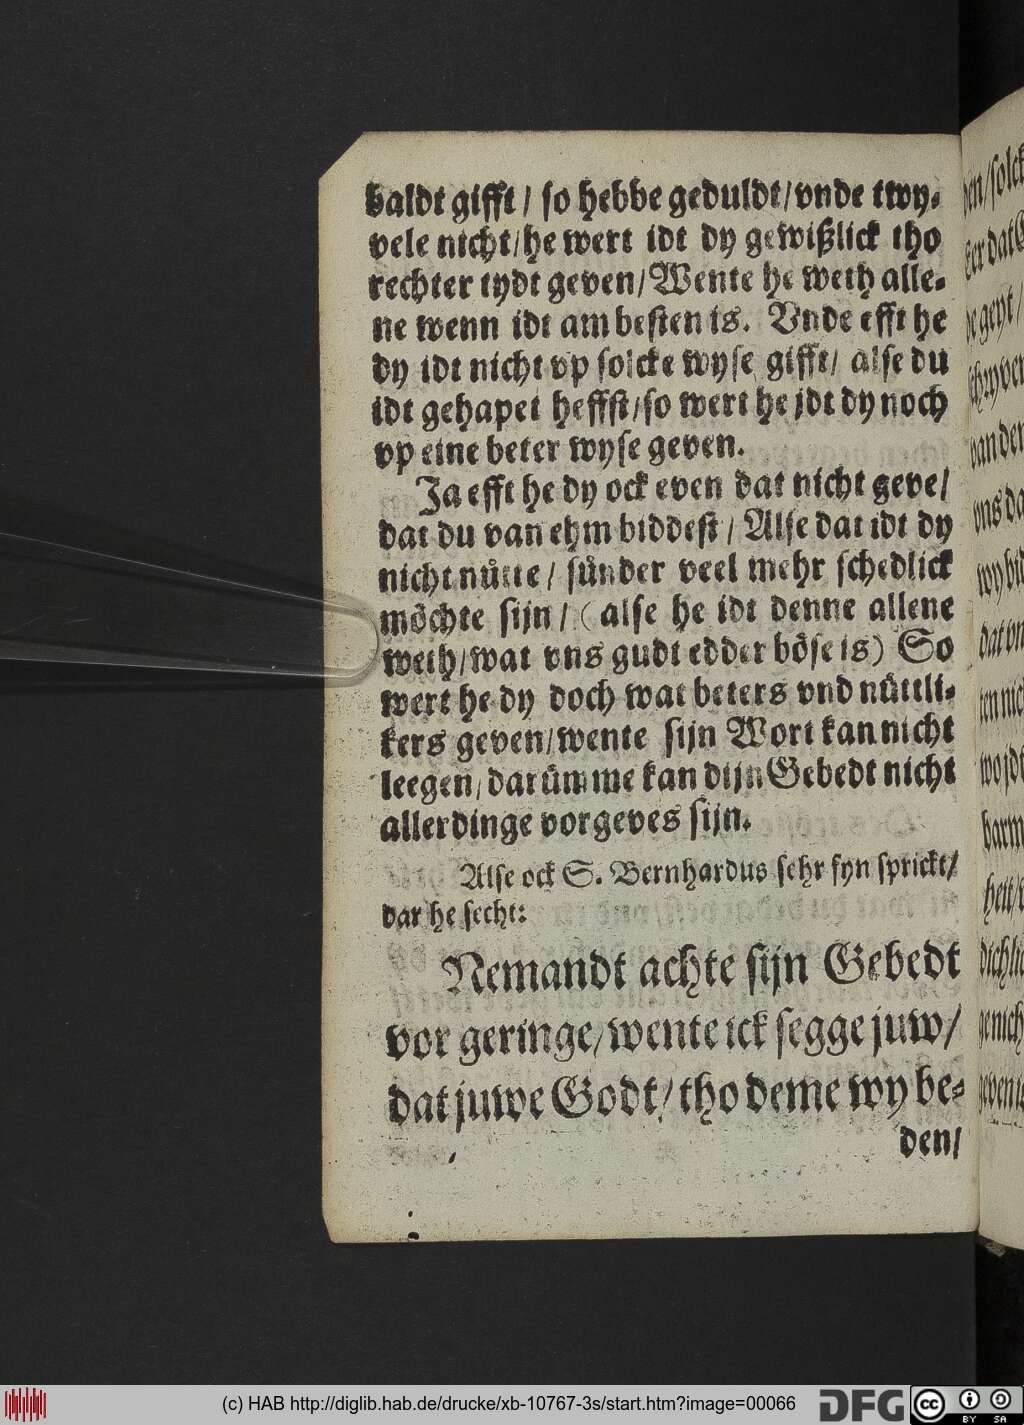 baldt gifft / so hebbe geduldt / vnde twy-
vele nicht / he wert idt dy gewißlick tho
rechter tydt geven / Wente he weth alle-
ne wenn idt am besten is. Vnde efft he
dy idt nicht vp solcke wyse gifft / alse du
idt gehapet heffst / so wert he jdt dy noch
vp eine beter wyse geven.
Ja efft he dy ock even dat nicht geve /
dat du van ehm biddest / Alse dat idt dy
nicht nütte / sünder veel mehr schedlick
möchte sijn / (alse he idt denne allene
weth / wat vns gudt edder böse is) So
wert he dy doch wat beters vnd nüttli-
kers geven / wente sijn Wort kan nicht
leegen / darümme kan dijn Gebedt nicht
allerdinge vorgeves sijn.
Alse ock S. Bernhardus sehr fyn sprickt /
dar he secht:
Nemandt achte sijn Gebedt
vor geringe / wente ick segge juw /
dat juwe Godt / tho deme wy be-
den /
(c) HAB http://diglib.hab.de/drucke/xb-10767-3s/start.htm?image=00066
DFG
cc
BY SA